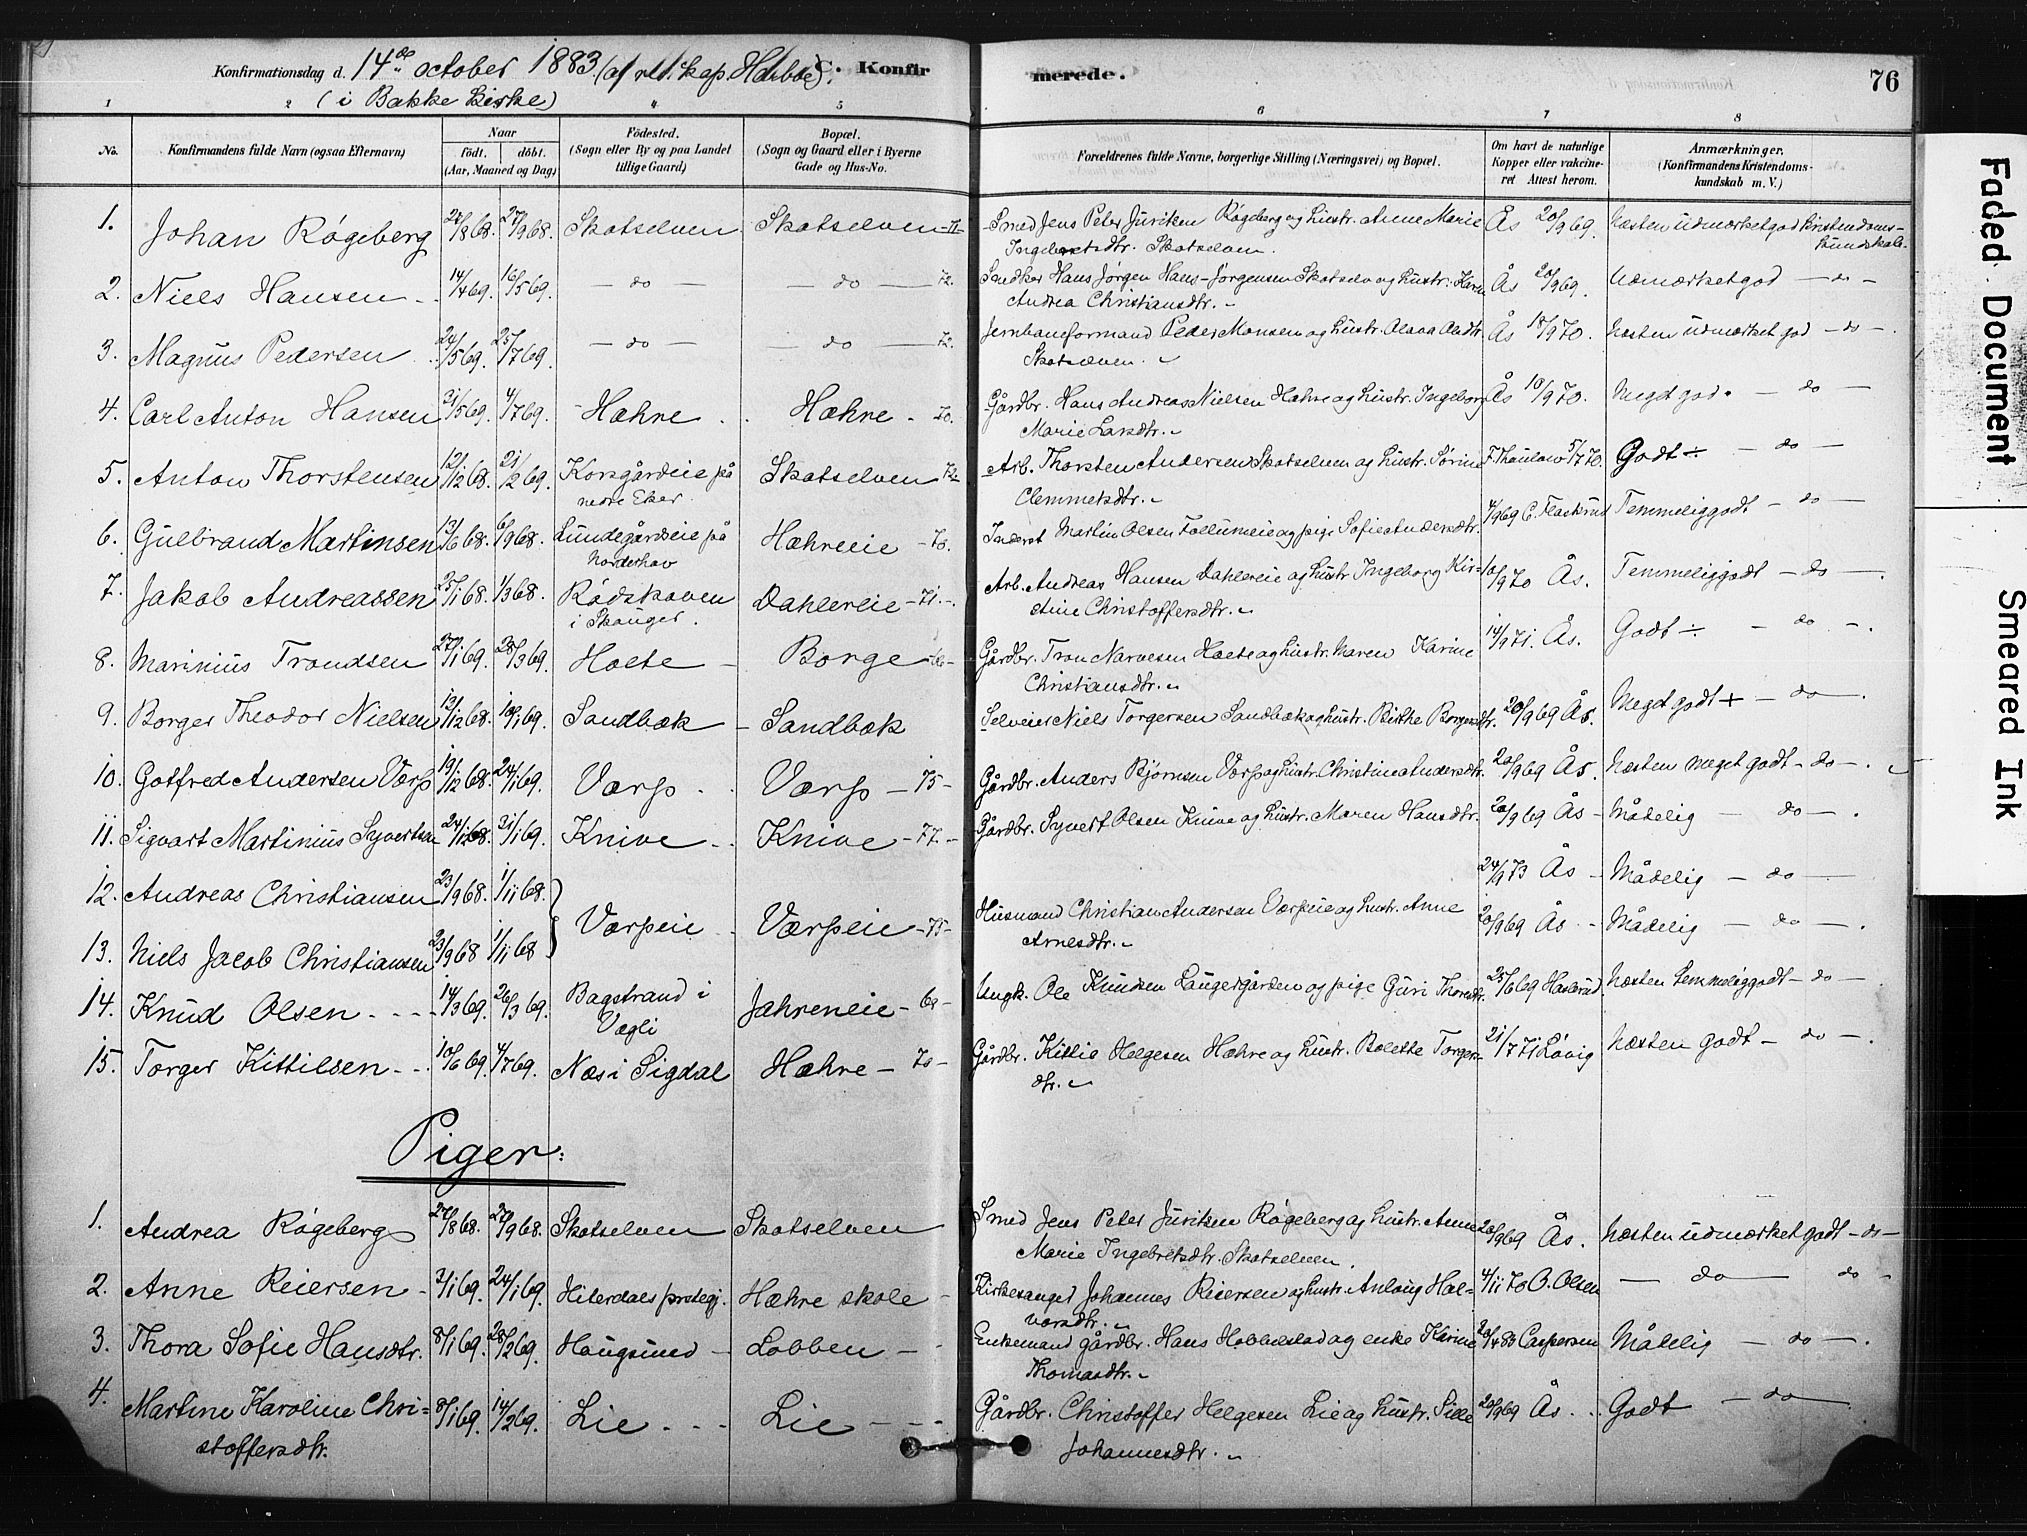 Konfirmationsdag d. 14de october 1883. (af res. kap. Harboe). C. Konfirmerede. 76
(i Bakke kirke)
1 2 4 5 6 7 8
No. Konfirmandens fulde Navn (ogsaa Efternavn) Naar födt. döbt. (Aar, Maaned og Dag) Födested. (Sogn eller By og paa Landet tillige Gaard) Bopæl. (Sogn og Gaard eller i Byerne Gade og Hus-No. Forældrenes fulde Navne, borgerlige Stilling (Næringsvei) og Bopæl. Om havt de naturlige Kopper eller vakcineret Attest herom. Anmærkninger. (Konfirmandens Kristendomskundskab m. V.)
1. Johan Røgeberg 27/8 68. 27/9 68. Skotselven Skotselven -71- Smed Jens Peter Juritzen Røgeberg og hustr. Anne Marie Ås 20/9 69. Næsten udmærket god kristendoms-
Ingebretsdtr. Skotselven. kundskab.
2. Niels Hansen - 14/4 69. 16/5 69. - do - - do - 72. Hans Jørgen Hans-Jørgensen Skotselv og hustr. Karen Ås 20/9 69. Udmærket god - do -
Andrea Christiansdtr. -
3. Magnus Pedersen 24/5 69. 25/7 69. - do - - do - 72. Jernbaneformand Peder Monsen og hustr. Olava Olsdtr. Ås 18/9 70. Næsten udmærket god - do -.
Skotselven.
4. Carl Anton Hansen 21/5 69. 4/7 69. Hæhre Hæhre - 70. Gårdbr. Hans Andreas Nielsen Hæhre og hustr. Ingeborg Ås 10/9 70. Meget god. - do -
Marie Larsdtr. -
5. Anton Thorstensen 12/12 68. 21/2 69. Korsgårdeie på Skotselven 72 Arb. Thorsten Andersen Skotselven og hustr. Sørine F. Thaulow 5/7 70. Godt ÷ - do -
nedre Eker. Clemmetsdtr. -
6. Gulbrand Martinsen 13/6 68. 6/9 68. Lundegårdseie på Hæhreeie - 70. Inderst Martin Olsen Follumeie og pige Sofie Andersdtr. 4/9 69 C. Flaskrud Temmelig godt - do -
Norderhov
7. Jakob Andreassen 25/1 68. 1/3 68. Rødskoven Dahlereie - 71-. Arb. Andreas Hansen Dahlereie og hustr. Ingeborg Kir- 10/9 70 Ås. Temmelig godt - do -.
i Skouger. stine Christoffersdtr. -
8. Marinius Trondsen 27/1 69. 28/3 69. Holte - Borge -66- Gårdbr. Tron Narvesen Holte og hustr. Maren Karine 14/9 71. Ås. Godt ÷ - do -.
Christiansdtr. -
9. Borger Theodor Nielsen 12/12 68. 10/1 69. Sandbæk - Sandbæk Selveier Niels Torgersen Sandbæk og hustr. Birthe Borgersdtr. 20/9 69 Ås. Meget godt + - do -.
10. Gotfred Andersen Værp 19/12 68. 24/1 69. Værp . . Værp - 75- Gårdbr. Anders Bjørnsen Værp og hustr. Christine Andersdtr. 20/9 69 Ås. Næsten meget godt - do -.
11. Sigvart Martinius Syvertsen 24/12 68. 31/1 69. Knive . . Knive - 77 - Gårdbr. Syvert Olsen Knive og hustr. Maren Hansdtr. 20/9 69 Ås - Mådelig - do -.
12. Andreas Christiansen 23/9 68. 1/11 68. 24/9 73 Ås - Mådelig - do -
Værpeie . Værpeie -75- Husmand Christian Andersen Værpeie og hustr. Anne
13. Niels Jacob Christiansen 23/9 68 1/11 68 Arnesdtr. - 20/9 69 Ås - Mådelig - do -.
14. Knud Olsen . - - - 14/3 69. 26/3 69. Bagstrand i Jahreneie - 69 - Ungk. Ole Knudsen Laugergården og pige Guri Thoresdtr. 25/6 69 Haslerud. Næsten temmelig godt - do -.
Vegli
15. Torger Kittilsen - - . 10/6 69. 4/7 69. Næs i Sigdal Hæhre - 70 - Gårdbr. Kittil Helgesen Hæhre og hustr. Bolette Torger- 21/7 71 Løvig Næsten godt - do -.
dtr. -
Piger:
1. Andrea Røgeberg 27/8 68. 27/9 68. Skotselven Skotselven Smed Jens Peter Juritzen Røgeberg og hustr. Anne 20/9 69 Ås. Næsten udmærket godt - do -
Marie Ingebretsdtr. Skotselven.
2. Anne Reiersen - 2/1 69. 24/1 69. Hiterdals prstegj. Hæhre skole - Kirkesanger Johannes Reiersen og hustr. Anlaug Hal- 4/11 70 O. Olsen - do - do -
vorsdtr. -
3. Thora Sofie Hansdtr. 8/1 69. 28/2 69. Hougsund - Lobben - - Enkemand gårdbr. Hans Hobbelstad og enke Karine 20/4 83 Caspersen Mådelig - do -.
Thomasdtr. -
4. Martine Karoline Chri= 8/1 69. 14/2 69. Lie . . . Lie - - - Gårdbr. Christoffer Helgesen Lie og hustr. Sille 20/9 69 Ås . . Godt - do -
stoffersdtr. Johannesdtr. . -
Faded Document Smeared Ink